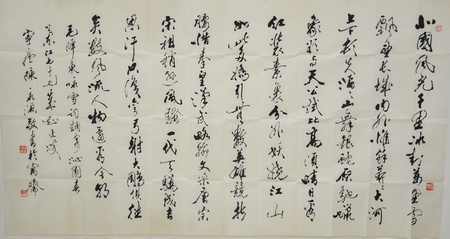 北國風光千里冰封萬里雪
飄望長城內外惟餘莽莽大河
上下頓失滔滔山舞銀蛇原馳蠟
象欲與天公試比高須晴日看
紅裝素裹分外妖嬈江山
如此多嬌引無數英雄競折
腰惜秦皇漢武略輸文采唐宗
宋祖稍遜風騷一代天驕成吉
思汗只識彎弓射大鵰俱往
矣數風流人物還看今朝
毛澤東咏雪詞調寄沁園春
江七十七叟
陳 敬書於